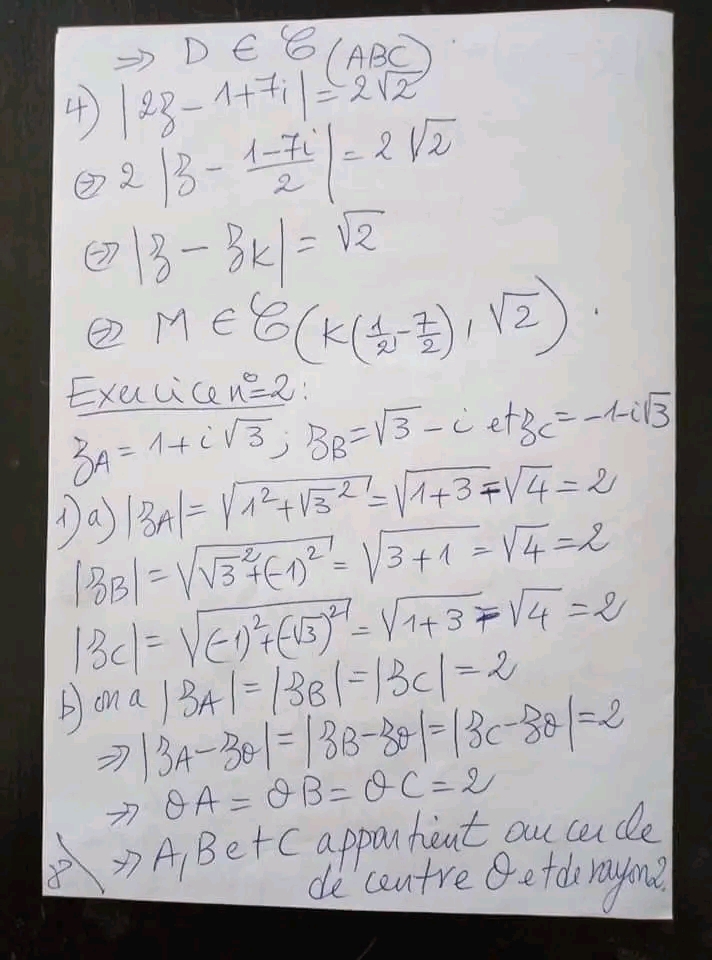 ⇒ D ∈ 𝒞(ABC).
4) |2z - 1+7i| = 2√2
⇔ 2 |z - (1-7i)/2| = 2√2
⇔ |z - zK| = √2
⇔ M ∈ 𝒞(K(1/2, -7/2), √2).
Exercice n°=2:
zA = 1+i√3 ; zB = √3 - i et zC = -1-i√3
1) a) |zA| = √(1²+√3²) = √(1+3) = √4 = 2
|zB| = √(√3²+(-1)²) = √(3+1) = √4 = 2
|zC| = √((-1)²+(-√3)²) = √(1+3) = √4 = 2
b) on a |zA| = |zB| = |zC| = 2
⇒ |zA-zO| = |zB-zO| = |zC-zO| = 2
⇒ OA = OB = OC = 2
⇒ A, B et C appartient au cercle
8 de centre O et de rayon 2.